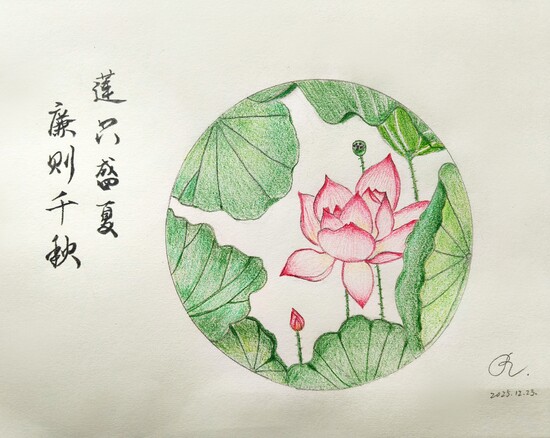 莲只盛夏
廉则千秋
2023.12.23.